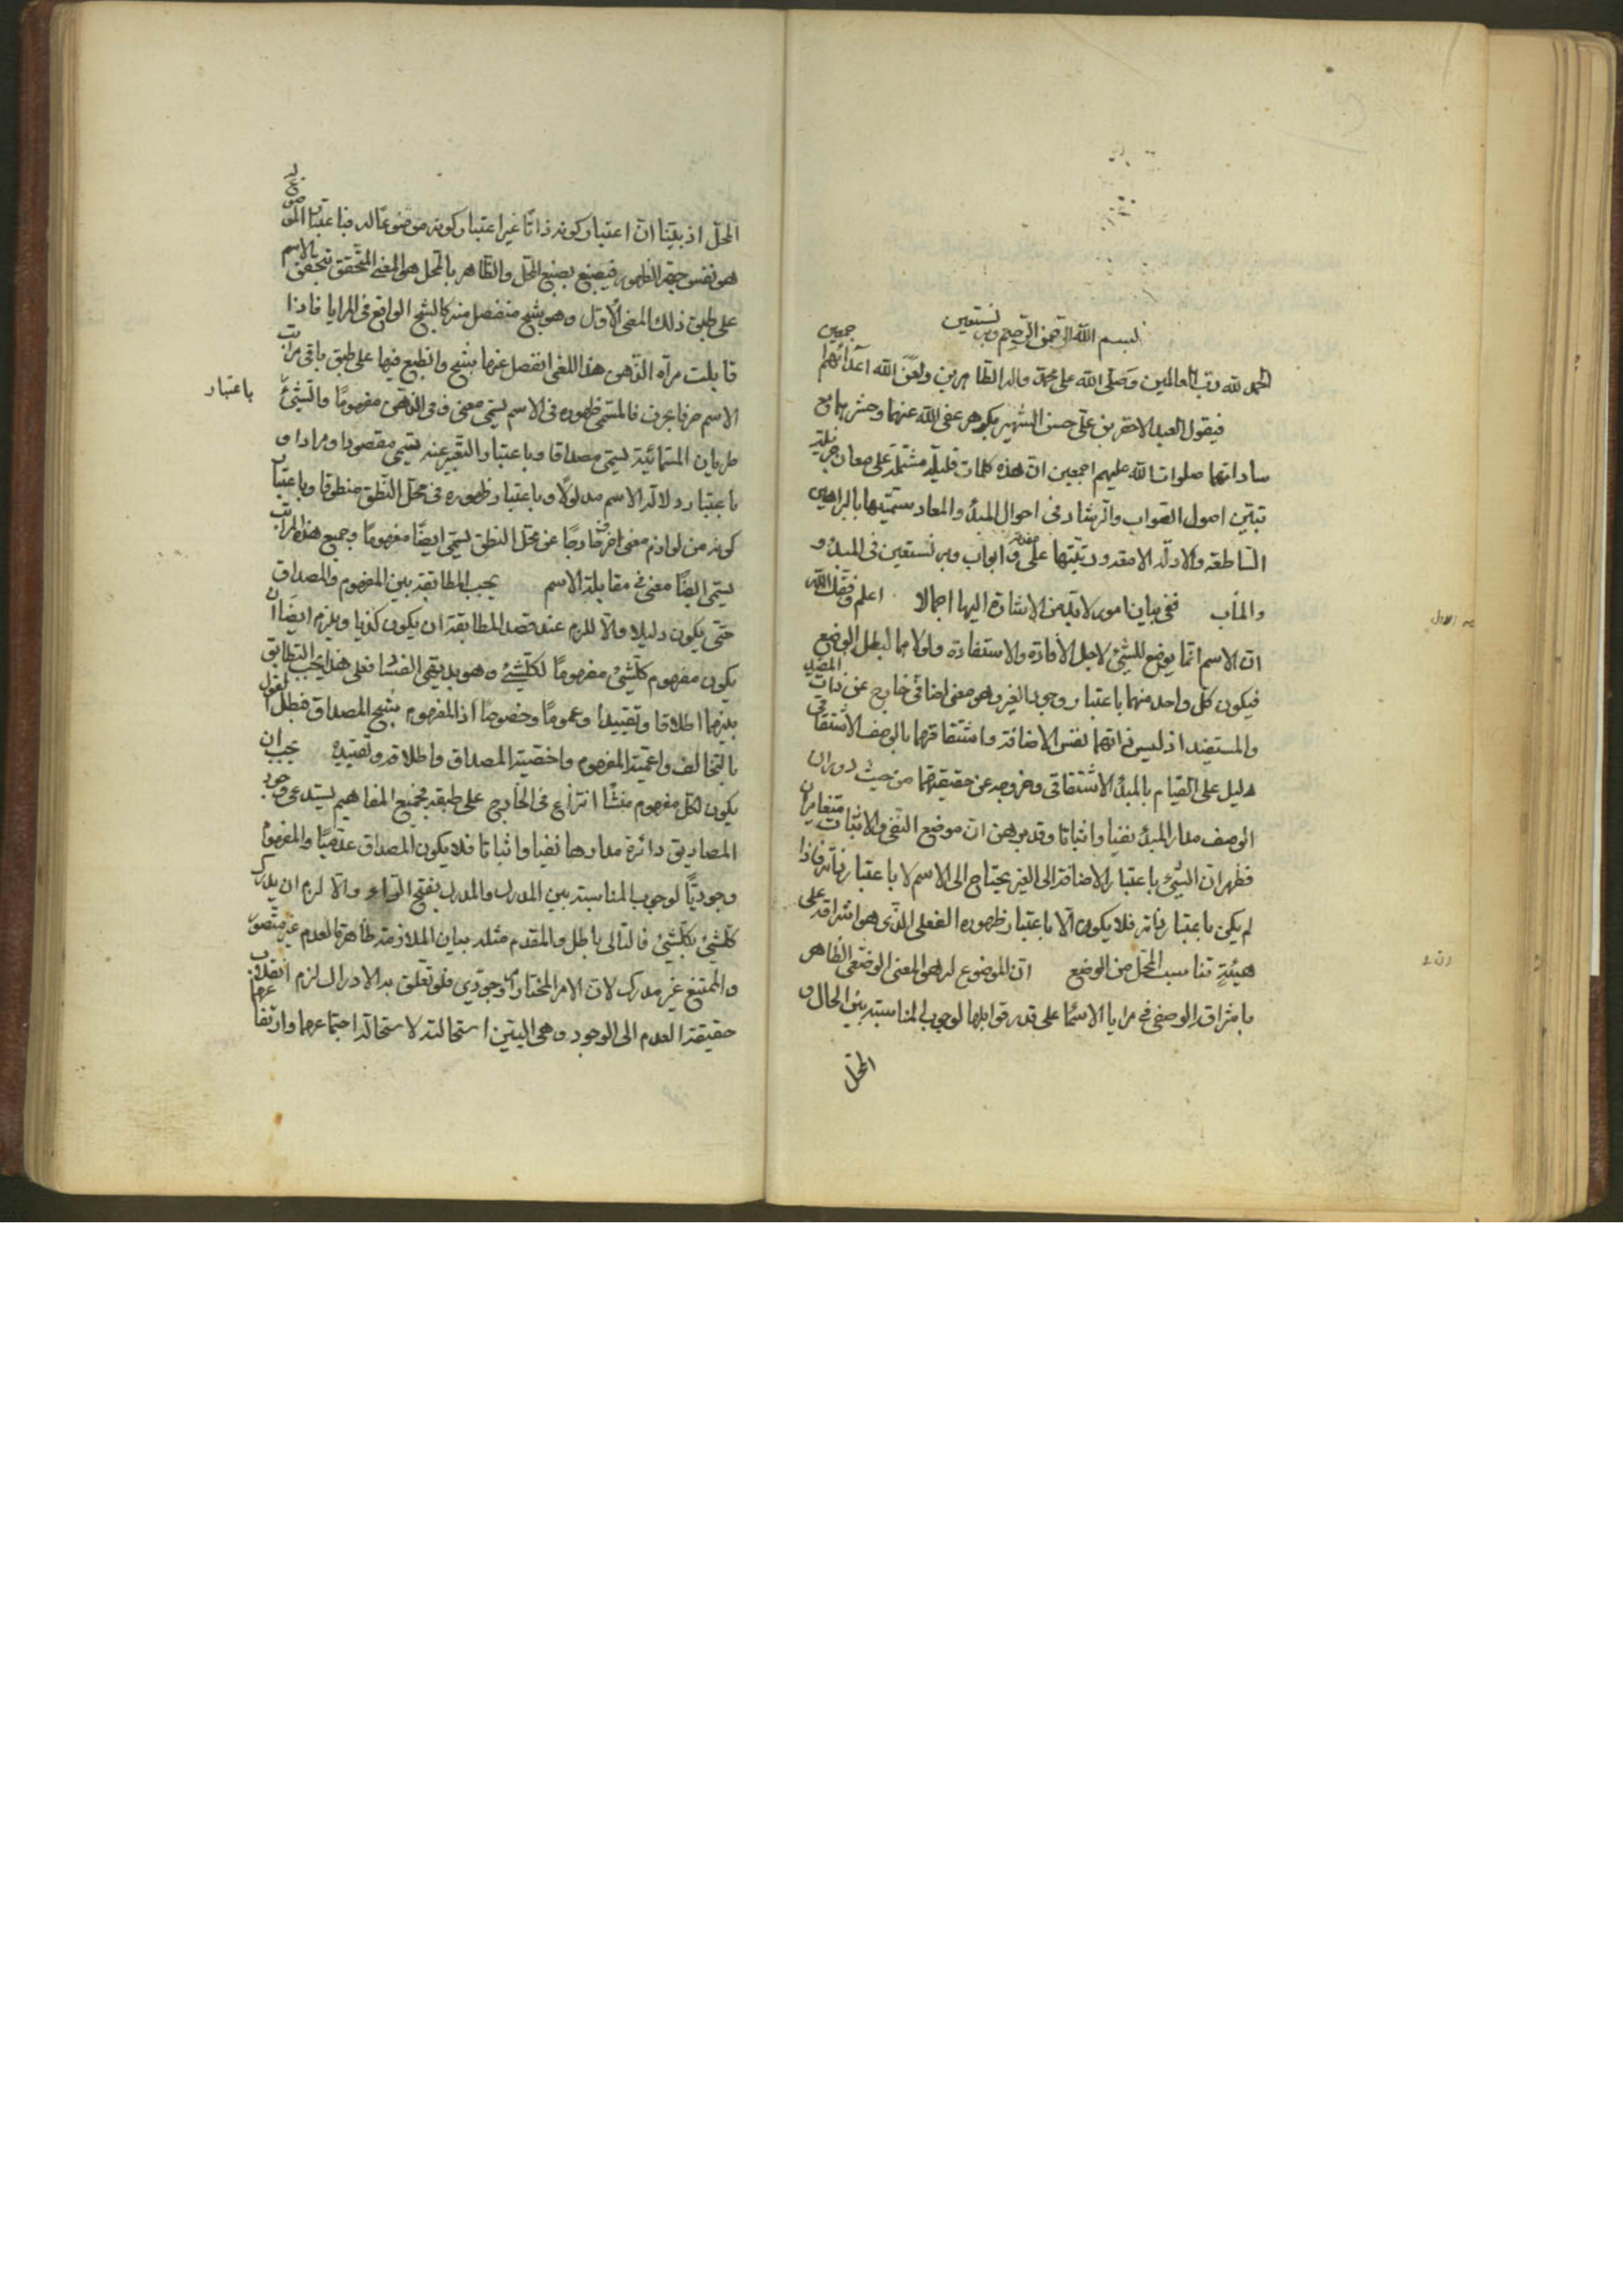 بسم الله الرحمن الرحیم وبه نستعین
الحمد لله رب العالمین وصلی الله علی محمد واله الطاهرین ولعن الله اعدائهم اجمعین
فیقول العبد الاحقر بن علی حسن الشهیر بکوهر عفی الله عنهما وحشرهما مع
ساداتهما صلوات الله علیهم اجمعین ان هذه کلمات قلیلة مشتملة علی معان جزیلة
تبین اصول الصواب والرشاد فی احوال المبدأ والمعاد سمیتها بالبراهین
الساطعة والادلة اللامعة ورتبتها علی مقدمة و ابواب وبه نستعین فی المبدأ و
والمآب فی بیان امور لابد من الاشارة الیها اجمالا اعلم وفقک الله
ان الاسم انما یوضع للشیء لاجل الافادة والاستفادة ولولاهما لبطل الوضع
فیکون کل واحد منهما باعتبار وجود الغیر وهو معنی اضافی خارج عن ذات المفید
والمستفید اذ لیس ذاتهما نفس الاضافة واشتقاقهما بالوصف الاشتقاقی
دلیل علی القیام بالمبدأ الاشتقاقی وخروجه عن حقیقتهما من حیث دوران
الوصف مدار المبدأ نفیا واثباتا وقد برهن ان موضع النفی والاثبات متغایران
فظهر ان الشیء باعتبار الاضافة الی الغیر یحتاج الی الاسم لا باعتبار ذاته فاذا
لم یکن باعتبار ذاته فلا یکون الا باعتبار ظهوره الفعلی الذی هو اشراقه علی
هیئة تناسب المحل من الوضع ان الموضوع له هو المعنی الوصفی الظاهر
باشراقه الوصفی فی مرایا الاسما علی قدر قوابلها لوجوب المناسبة بین الحال و
المحل
المحل اذ بینا ان اعتبار کونه ذاتا غیر اعتبار کونه موضوعا له فباعتبار الموضوع له
هو نفس جهة الظهور فیصبغ بصبغ المحل والظاهر بالمحل هو المعنی المتحقق بتحقق بالاسم
علی طبق ذلک المعنی الاول وهو شبح منفصل منه کالشبح الواقع فی المرایا فاذا
قابلت مرآة الذهن هذا اللغی انفصل عنها شبح وانطبع فیها علی طبق باقی مراتب
الاسم حرفا بحرف فالمسمی ظهوره فی الاسم یسمی معنی و فی الذهن مفهوما والشیء
باعتبار
طریان المسمائیة یسمی مصداقا وباعتبار التعبیر عنه یسمی مقصودا ومرادا و
باعتبار دلالة الاسم مدلولا وباعتبار ظهوره فی محل النطق منطوقا وباعتبار
کونه من لوازم معنی اخر خارجا عن محل النطق یسمی ایضا مفهوما وجمیع هذه المراتب
یسمی ایضا معنی فی مقابلة الاسم یجب المطابقة بین المفهوم والمصداق
حتی یکون دلیلا والا للزم عند قصد المطابقة ان یکون کذبا ویلزم ایضا ان
یکون مفهوم کلشیء مفهوما لکلشیء وهو بدیهی الفسا فعلی هذا یجب التطابق
بینهما اطلاقا وتقییدا وعموما وخصوصا اذ المفهوم شبح المصداق فبطل القول
بالتخالف واعمیة المفهوم واخصیة المصداق واطلاقه وتقییده یجب ان
یکون لکل مفهوم منشأ انتزاع فی الخارج علی طبقه فجمیع المفاهیم یستدعی وجود
المصادیق دائرة مدارها نفیا واثباتا فلا یکون المصداق عدمیا والمفهوم
وجودیا لوجوب المناسبة بین المدرک والمدرک بفتح الراء والا لزم ان یدرک
کلشیء بکلشیء فالتالی باطل والمقدم مثله بیان الملازمة ظاهرة العدم غیر متصور
والممتنع غیر مدرک لان الامر المختار وجودی فلو تعلق به الادراک لزم انقلاب
حقیقة العدم الی الوجود وهی البین استحالته لاستحالة اجتماعهما وارتفاعهما